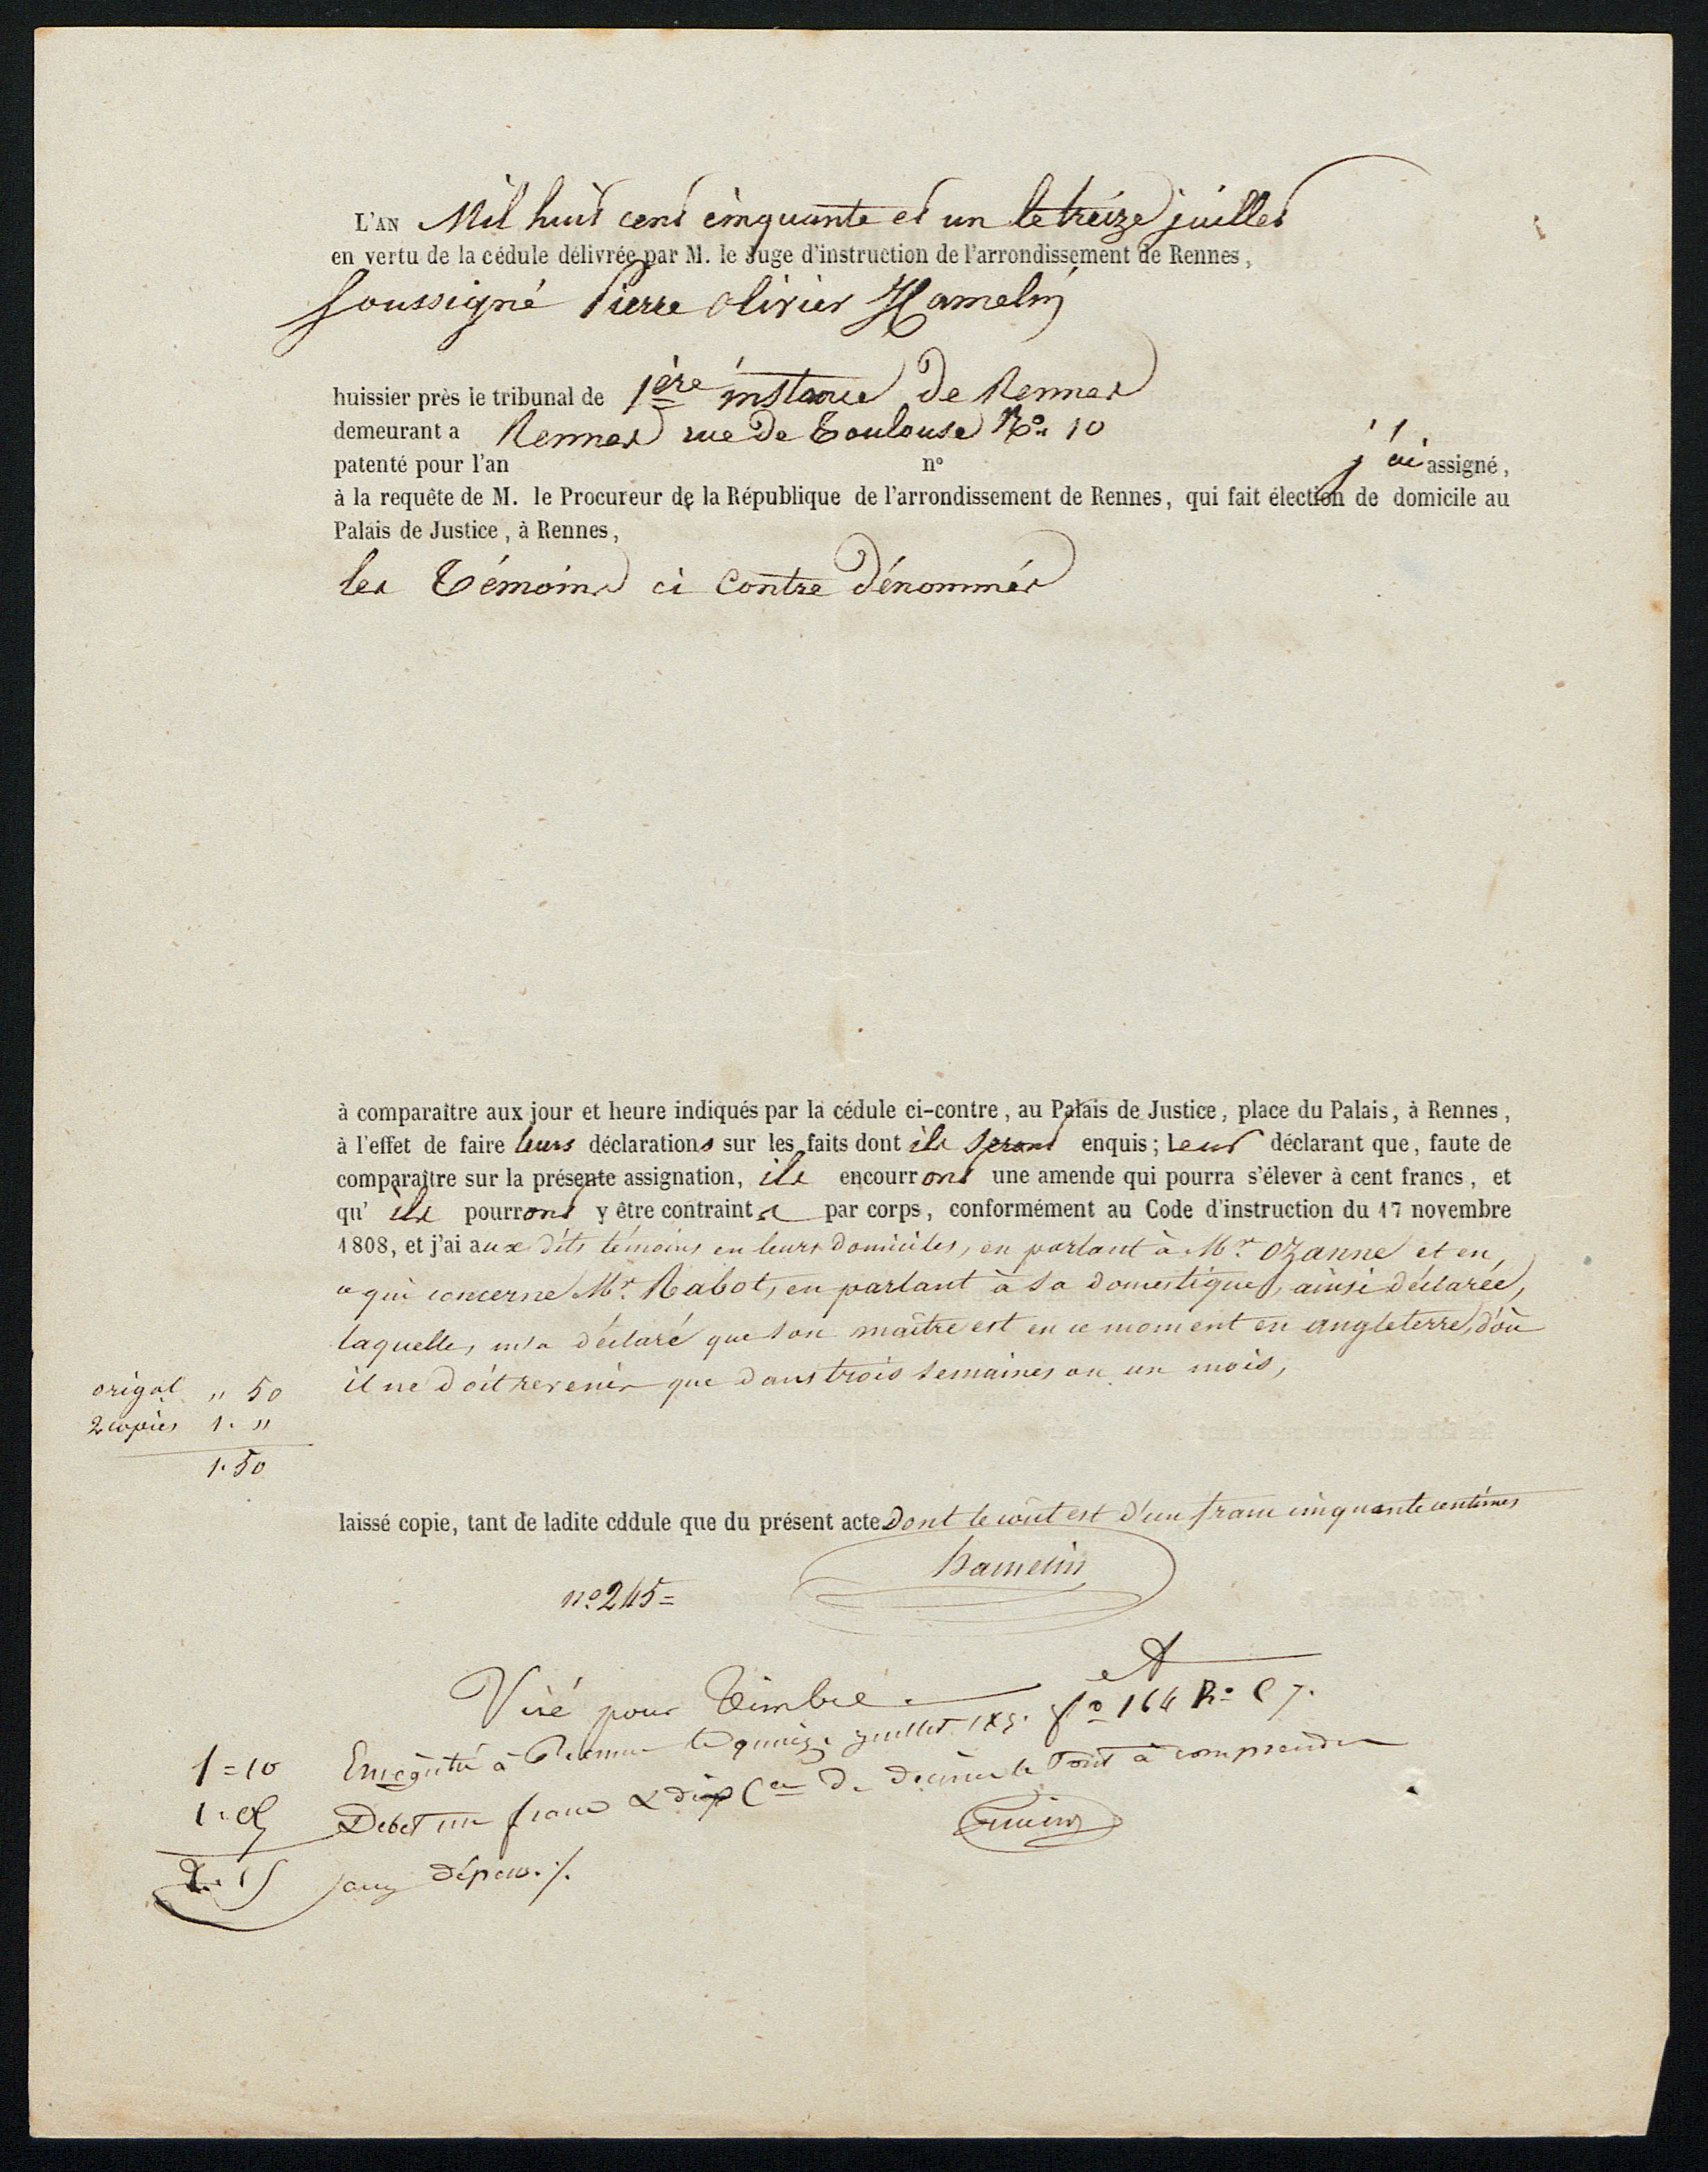 L'AN Mil huit cent cinquante et un le treize juillet
en vertu de la cédule délivrée par M. le Juge d'instruction de l'arrondissement de Rennes,
Soussigné Pierre Olivier Hamelin
huissier près le tribunal de 1ère instance de Rennes
demeurant a Rennes rue de Toulouse No. 10
patenté pour l'an n° j'ai assigné,
à la requête de M. le Procureur de la République de l'arrondissement de Rennes, qui fait élection de domicile au
Palais de Justice, à Rennes,
les Témoins ci contre dénommés
à comparaître aux jour et heure indiqués par la cédule ci-contre, au Palais de Justice, place du Palais, à Rennes,
à l'effet de faire leurs déclarations sur les faits dont ils seront enquis; Leur déclarant que, faute de
comparaître sur la présente assignation, ils encourront une amende qui pourra s'élever à cent francs, et
qu' ils pourront y être contraints par corps, conformément au Code d'instruction du 17 novembre
1808, et j'ai aux dits témoins en leurs domiciles, en parlant à Mr. Ozanne et en
ce qui concerne Mr. Rabot, en parlant à sa domestique, ainsi déclarée,
laquelle, m'a déclaré que son maître est en ce moment en angleterre, d'où
il ne doit revenir que dans trois semaines ou un mois,
origal " 50
2 copies 1. "
1. 50
laissé copie, tant de ladite cddule que du présent acte Dont le coût est d'un franc cinquante centimes
hamelin
n° 245=
Visé pour Timbre et
1=10 Enregistré à Rennes le quinze juillet 185. fo 164 Ro C 7.
Debet un franc & dix Ces de décime le Tout à comprendre
aux dépens ./.